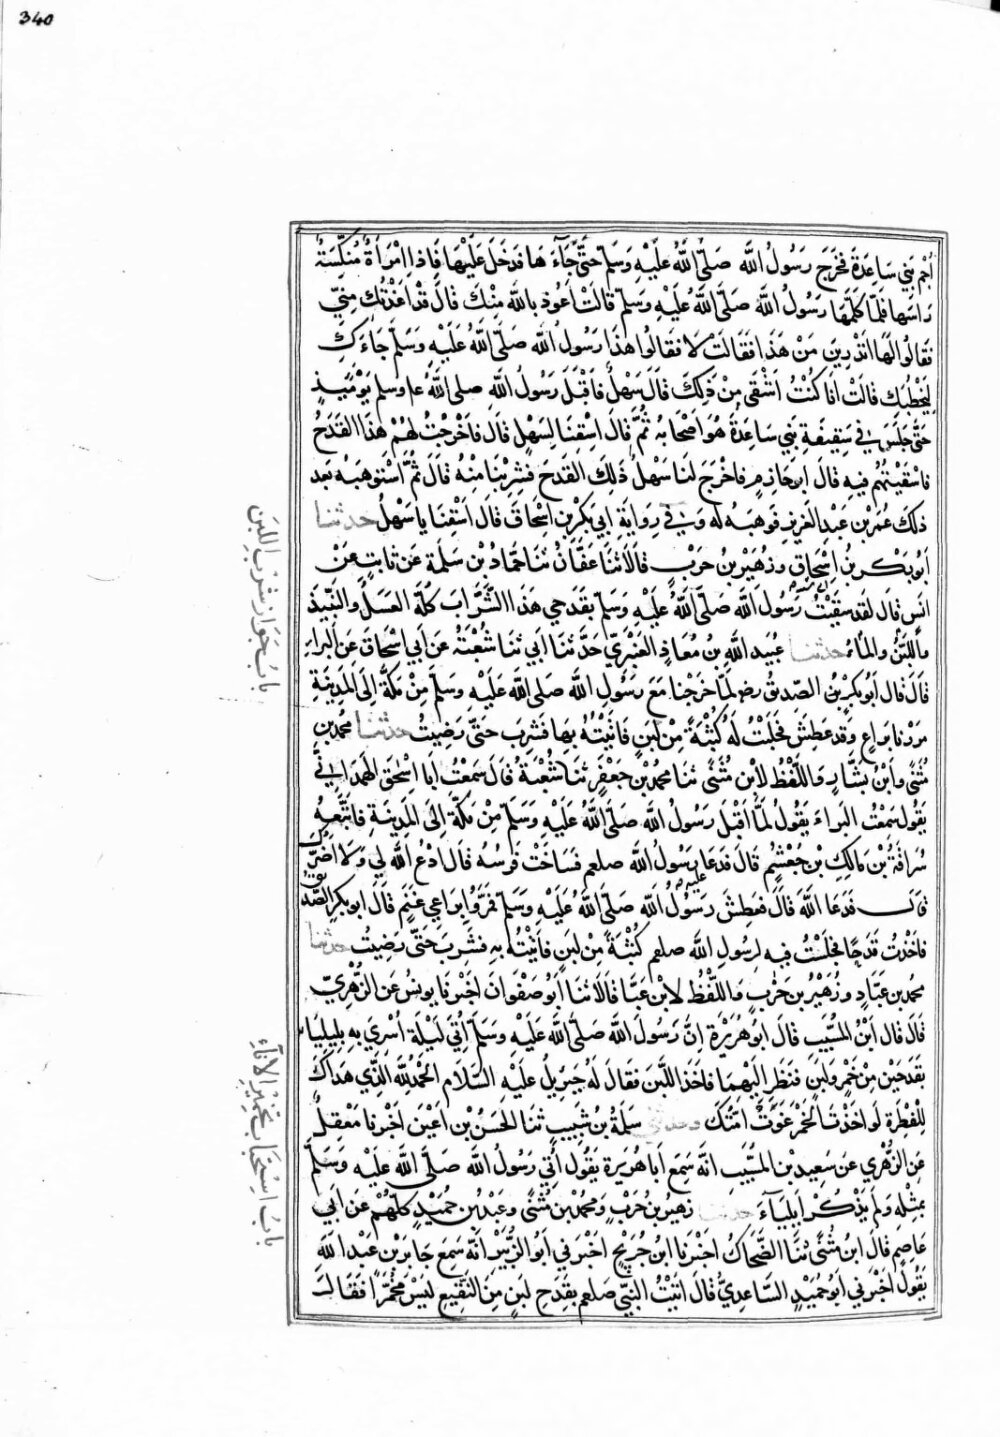 340
أُجُم بَنِي سَاعِدَةَ فَخَرَجَ رَسُولُ اللَّه صَلَّى اللَّهُ عَلَيْهِ وَسَلَّم حَتَّى جَآءَهَا فَدَخَلَ عَلَيْهَا فَاِذَا امْرَأَةٌ مُنَكِّسَةٌ
رَاسَهَا فَلَمَّا كَلَّمَهَا رَسُولُ اللَّه صَلَّى اللَّهُ عَلَيْهِ وَسَلَّم قَالَتْ اَعُوذ بِاللَّه مِنْكَ قَالَ قَدْ اَعَذْتُكِ مِنِّي
فَقَالُوا لَهَا اَتَدْرِينَ مَنْ هَذَا فَقَالَتْ لَا فَقَالُوا هَذَا رَسُولُ اللَّه صَلَّى اللَّهُ عَلَيْهِ وَسَلَّم جَاءَكِ
لِيَخْطُبَكِ قَالَتْ اَنَا كُنْتُ اَشْقَى مِنْ ذَلِكَ قَالَ سَهْلٌ فَاَقْبَلَ رَسُولُ اللَّه صلى اللَّهُ ع‍ا وسلم يَوْمَئِذٍ
حَتَّى جَلَسَ فِي سَقِيفَةِ بَنِي سَاعِدَةَ هُوَ وَاَصْحَابُهُ ثُمَّ قَالَ اسْقِنَا لِسَهْلٍ قَالَ فَاَخْرَجْتُ لَهُمْ هَذَا القَدَحَ
فَاَسْقَيْتُهُم فِيهِ قَالَ ابو حَازِم فَاَخْرَجَ لَنَا سَهْلٌ ذَلِكَ القَدَحَ فَشَرِبْنَا مِنْهُ قَالَ ثُمَّ اسْتَوهَبَهُ بَعد
ذلِكَ عُمَر بن عَبد العَزيز فَوهَبَهُ له وَفِي رِوَايَةِ ابي بَكْرِ بن اِسْحَاق قَالَ اسْقِنَا يَا سَهْلُ حدثنا
اَبُو بَكْر بنُ اِسْحَاق وَزُهَيْر بنُ حَرْب قَالَا ثَنَا عَفَّانُ ثَنَا حَمَّادُ بْن سَلَمة عَن ثَابت عَنْ
انَس قَالَ لَقَد سَقَيْتُ رَسُولَ اللَّه صَلَّى اللَّهُ عَلَيْهِ وَسَلَّم بِقَدَحِي هَذا الشَّرَابَ كُلَّهُ العَسَلَ وَالنَّبِيذَ
وَاللَّبَنَ وَالمَاءَ حدثنا عُبَيد اللَّه بنُ مُعَاذ العَنْبَري حَدَّثَنَا اَبي ثَنَا شُعْبَةُ عَن اَبي اِسْحَاق عَن البَراءِ
قَالَ قَال اَبُو بَكْر الصّديق رضـ لمَّا خَرَجْنَا مَعَ رَسُولِ اللَّه صَلى اللَّه عَلَيْه وَسَلَّم مِنْ مَكَّةَ اِلَى المَدِينَةِ
مَرَرْنَا بِرَاعٍ وَقَد عَطِشَ فَحَلَبْتُ لَهُ كُثْبَةً مِنْ لَبَنٍ فَاَتَيْتُهُ بِهَا فَشَرِبَ حَتَّى رَضِيتُ حدثنا مُحمدُ بن
مُثَنَّى وَابْنُ بَشَّارٍ وَاللَّفْظُ لِابْن مُثَنَّى ثَنَا مُحَمَّدُ بن جَعْفَرٍ ثَنَا شُعْبَةُ قَالَ سَمِعْتُ اَبَا اِسْحَق الهَمْدَانِيَّ
يَقُول سَمِعْتُ البَراءَ يَقُولُ لَمَّا اَقْبَلَ رَسُولُ اللَّه صَلَّى اللَّهُ عَلَيْهِ وَسَلَّم مِنْ مَكَّةَ اِلَى المَدِينَةِ فَاتَّبَعَهُ
سُرَاقَةُ بْن مَالِكِ بْن جُعْشُمٍ قَالَ فَدَعَا عَليه رَسُولُ اللَّه صلعم فَسَاخَتْ فَرَسُهُ فَقال ادْعُ اللَّه لي وَلَا اَضُرُّكَ
قَالَ فَدَعَا اللَّهَ قَالَ فَعَطِشَ رَسُولُ اللَّه صَلَّى اللَّهُ عَلَيْه وَسَلَّم فَمَرُّوا بِرَاعِي غَنَمٍ قَالَ ابو بَكْرٍ الصِّدِّيقُ
فَاَخَذْتُ قَدَحًا فَحَلَبْتُ فِيه لِرَسُولِ اللَّه صلعم كُثْبَةً مِنْ لَبَنٍ فَاَتَيْتُهُ بِهِ فَشَرِبَ حَتَّى رَضِيتُ حدثنا
محمد بن عَبَّادٍ وَزُهَيْرُ بن حَرْبٍ وَاللَّفْظُ لِابْن عَبَّاد قَالَا ثَنَا اَبُو صَفْوَانَ اَخْبَرنَا يُونُسُ عَن الزُّهْرِيِّ
قَالَ قَالَ ابْنُ المُسَيَّبِ قَالَ ابُو هُرَيْرَةَ اِنَّ رَسُولَ اللَّه صَلَّى اللَّه عَلَيْهِ وَسَلَّم اُتِيَ لَيْلَةَ اُسْرِيَ بِهِ بِايلِيَاءَ
بِقَدَحَيْن مِنْ خَمْرٍ وَلَبَنٍ فَنَظَرَ اِلَيْهِمَا فَاَخَذَ اللَّبَنَ فَقَالَ لَهُ جِبْرِيلُ عَلَيْهِ السَّلَام الحَمْدُ للَّهِ الَّذِي هَدَاكَ
لِلْفِطْرَةِ لَو اَخَذْتَ الخَمْرَ غَوَتْ اُمَّتُكَ وحدثني سَلَمَةُ بنُ شَبِيبٍ ثَنَا الحَسَنُ بْن اَعْيَنَ اَخْبَرنَا مَعْقِلٌ
عَن الزُّهْري عَن سَعِيد بن المسَيَّب انّه سَمِعَ اَبَا هُرَيرةَ يَقُولُ اُتِي رَسُولُ اللَّهِ صَلَّى اللَّه عَلَيْهِ وَسَلَّم
بِمِثْلِهِ وَلَمْ يَذْكُرْ اِيلِيَآءَ حدثنا زُهَيْر بن حَرْبٍ وَمُحمد بْن مُثَنَّى وَعَبْد بن حُمَيْدٍ كُلُّهُمْ عَن اَبي
عَاصِمٍ قَالَ ابن مُثَنَّى ثَنَا الضَّحَّاكُ اَخبَرنَا ابنُ جُرَيْج اَخْبَرَنِي اَبو الزُّبَيْر انَّه سَمِعَ جَابِر بْن عَبْد اللَّه
يَقُولُ اَخْبَرني اَبُو حُمَيْدٍ السَّاعِدِيُّ قَالَ اَتَيْتُ النَّبِيَّ صلعم بِقَدَحِ لَبَنٍ مِنَ النَّقِيعِ لَيْسَ مُخَمَّرًا فَقَالَ
بَابُ جَوَاز شُرْب اللَّبَن
بَابُ اسْتِحْبَاب تَخْمِيْر الاِنَآءِ